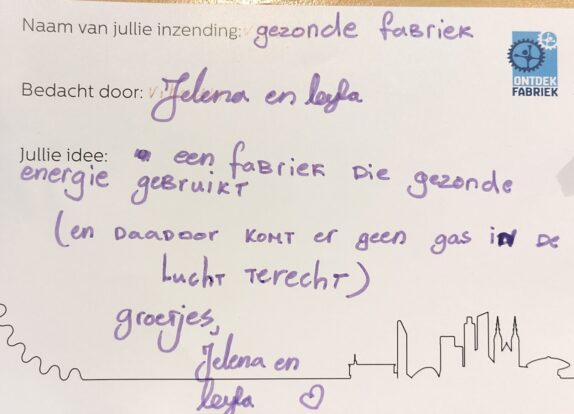 Naam van jullie inzending: gezonde fabriek
ONTDEK
FABRIEK
Bedacht door: Jelena en leyla
Jullie idee: een fabriek die gezonde
energie gebruikt
(en daadoor komt er geen gas in de
lucht terecht)
groetjes,
Jelena en
leyla